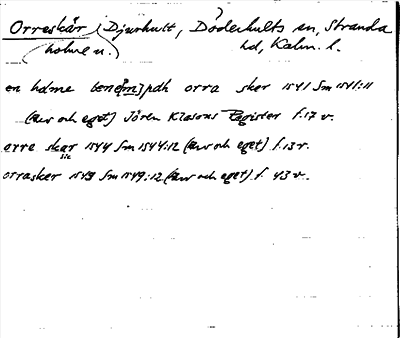 Orreskär (Djurhult, Döderhults sn, Stranda
holme u.) hd, Kalm. l.
en holme benemd pdh orra sker 1541 Sm 1541:11
(arv och eget) Jören Klasons Register f.17 v.
orre skar 1544 Sm 1544:12 (arv och eget) f.13 r.
sic
orrasker 1549 Sm 1549:12 (arv och eget) f. 43 v.